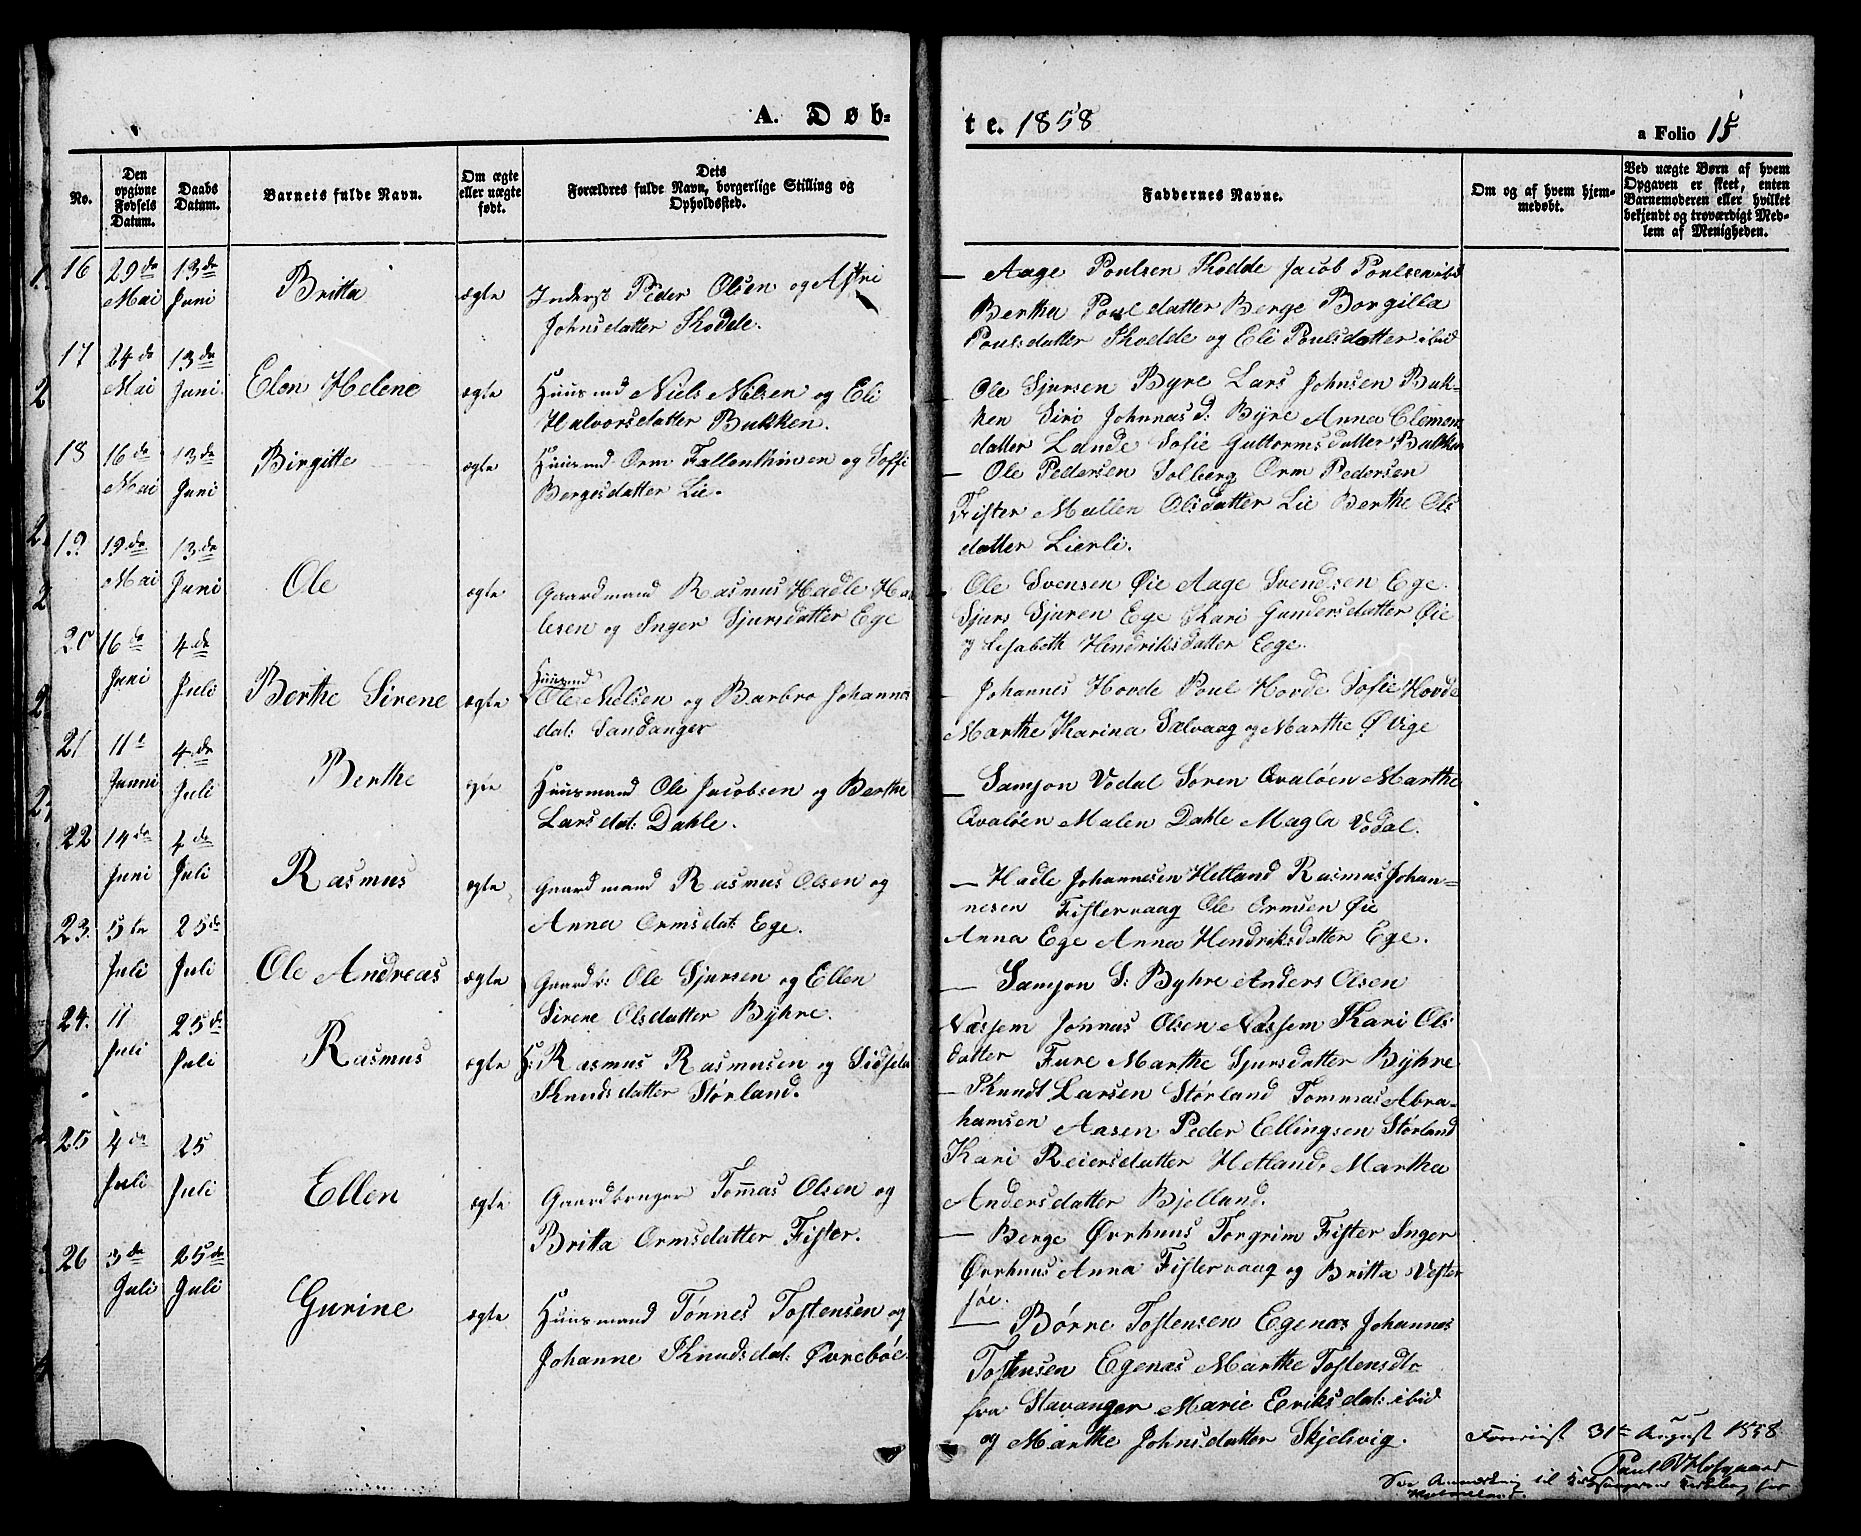 A. Døb-
te. 1858
a Folio 15
No.
Den opgivne Fødsels Datum.
Daabs Datum.
Barnets fulde Navn.
Om ægte eller uægte født.
Dets Forældres fulde Navn, borgerlige Stilling og Opholdssted.
Faddernes Navne.
Om og af hvem hjemmedøbt.
Ved uægte Børn af hvem Opgaven er skeet, enten Barnemoderen eller hvilket bekjendt og troværdigt Medlem af Menigheden.
16 29de Mai 13de Juni Britta ægte
Inderst Peder Olsen og Astri
Johnsdatter Skodde.
– Aage Poulsen Skodde Jacob Poulsen ibid
Bertha Poulsdatter Berge Borgilla
Poulsdatter Skodde og Eli Poulsdatter ibid
17 24de Mai 13de Juni Elen Helene ægte
Huusmd Niels Nilsen og Eli
Halvorsdatter Bukken.
Ole Sjursen Byre Lars Johnsen Buk-
ken Siri Johnnasd: Byre Anna Clemen
datter Lande Sofie Guttormsdatter Bukken
18 16de Mai 13de Juni Birgitte ægte
Huusmd Orm Fallenthinsen og Soffi
Bergesdatter Lie.
– Ole Pedersen Solberg Orm Pedersen
Fister Mallen Olsdatter Lie Berthe Ols
datter Lierli.
19 19de Mai 13de Juni Ole ægte
Gaardmand Rasmus Hadle Ha
lesen og Inger Sjursdatter Ege
Ole Svensen Øie Aage Svendsen Ege
Sjurs Sjuren Ege Kari Gundersdatter Øie
og Lisabeth Hendriksdatter Ege.
20 16de Juni 4de Juli Berthe Sirene ægte
Huusmd
Ole Nielsen og Barbro Johannes
dat: Sandanger
– Johannes Hovde Poul Hovde Sofie Hovde
Marthe Karina Sælvaag og Marthe Øvige
21 11te Junni 4de Juli Berthe ægte
Huusmand Ole Jacobsen og Berthe
Larsdat: Dahle.
– Samson Vodal Søren Qvaløen Marthe
Qvaløen Malen Dahle Magla Vodal.
22 14de Juni 4de Juli Rasmus ægte
Gaardmand Rasmus Olsen og
Anna Ormsdat: Ege.
– Hadle Johannesen Hetland Rasmus Johan-
nesen Fistervaag Ole Ormsen Øie
Anna Ege Anna Hendriksdatter Ege.
23. 5te Juli 25de Juli Ole Andreas ægte
Gaardb: Ole Sjursen og Ellen
Sirene Olsdatter Byhre.
– Samson S: Byhre Anders Olsen
Næssem Jonnas Olsen Næssem Kari Ols
datter Fure Marthe Sjursdatter Byhre
24. 11 Juli 25de Juli Rasmus ægte
H: Rasmus Rasmusen og Sidsela
Knudsdatter Størland.
– Knudt Larsen Størland Tommas Abra-
hamsen Aasen Peder Ellingsen Størland
Kari Reiersdatter Hetland, Martha
Andersdatter Bjelland.
25 4de Juli 25 Juli Ellen ægte
Gaardbruger Tommas Olsen og
Britta Ormsdatter Fister.
– Berge Ørrhuus Torgrim Fister Inger
Ørrhuus Anna Fistervaag og Britta Vester
søe.
26 3de Juli 25de Juli Gurine ægte
Huusmand Tønnes Tostensen og
Johanne Knudsdat: Øvrebøe.
– Børre Tostensen Egenæs Johannes
Tostensen Egenæs Marthe Tostensdtr
fra Stavanger Marie Eriksdat: ibid
og Marthe Johnsdatter Skjelvig.
Foreviist 31te August 1858